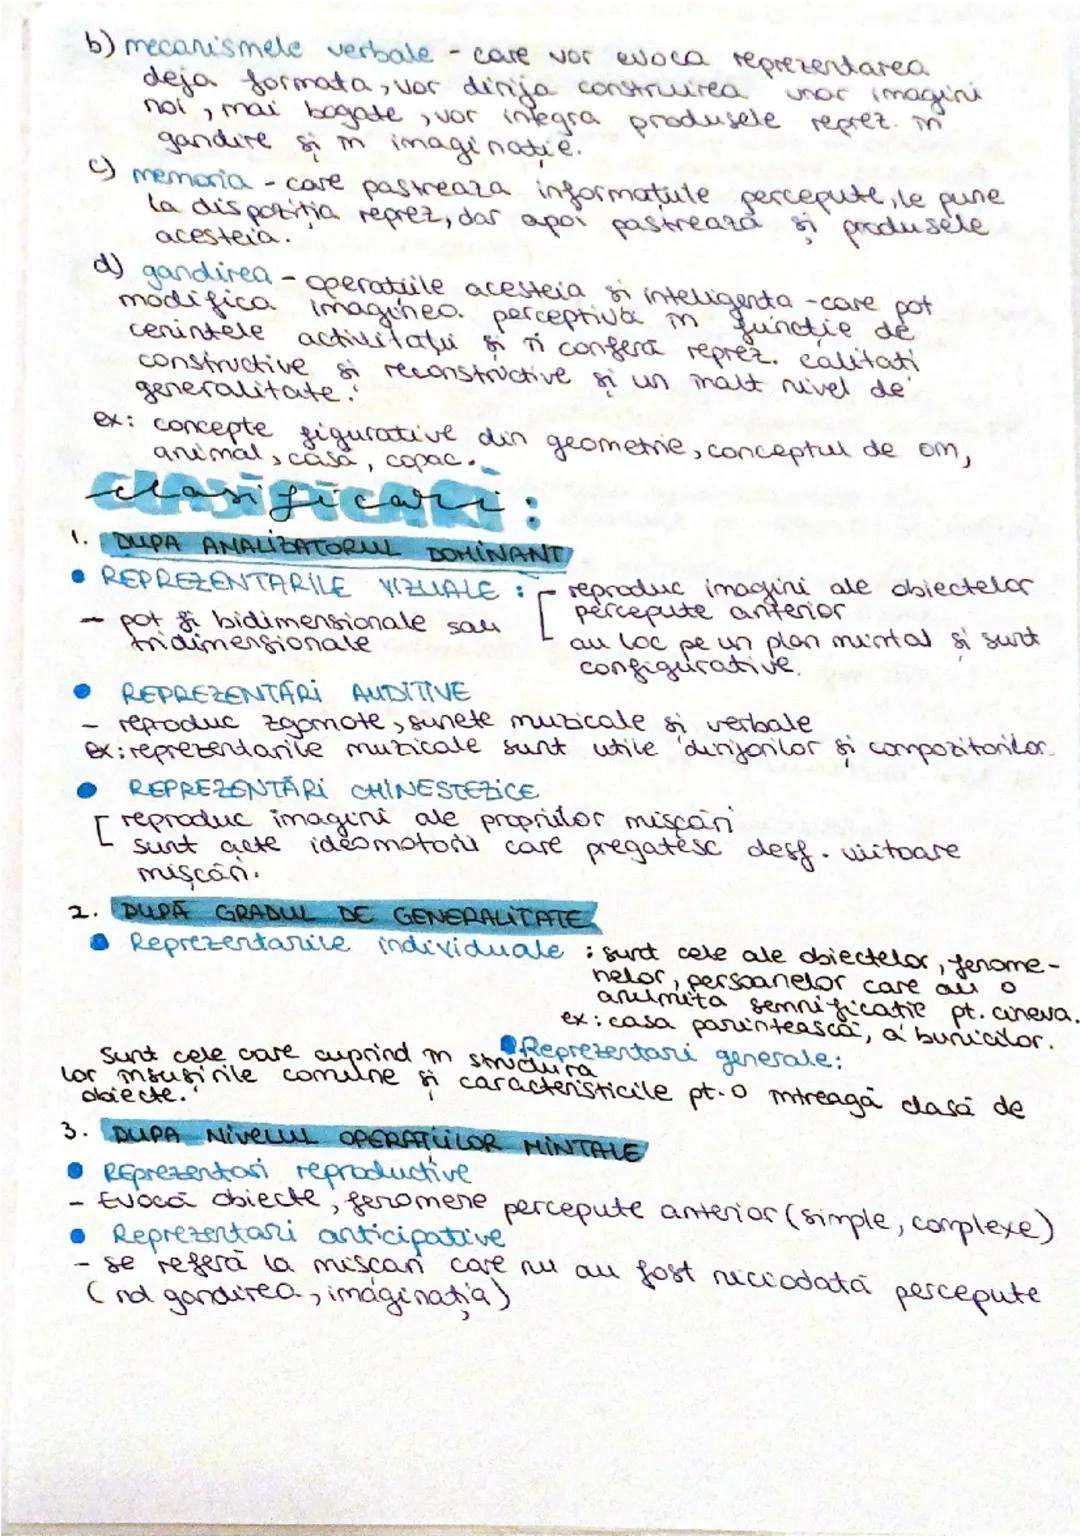 b) mecanismele verbale - care vor evoca reprezentarea
deja formata, vor dirija construirea unor imagini
noi, mai bogate, vor integra produsele reprez. în
gandire și în imaginație.
c) memoria - care pastreaza informațiile percepute, le pune
la dispoziția reprez, dar apoi pastrează și produsele
acesteia.
d) gandirea - operatiile acesteia și inteligenta - care pot
modifica imaginea perceptivă în funcție de
cerințele activitatii și îi conferă reprez. calitati
constructive și reconstructive și un înalt nivel de
generalitate.
ex: concepte figurative din geometrie, conceptul de om,
animal, casă, copac.
clasificari:
1. DUPA ANALIZATORUL DOMINANT
• REPREZENTARILE VIZUALE : - reproduc imagini ale obiectelor
percepute anterior
- pot fi bidimensionale sau
tridimensionale
- au loc pe un plan mintal și sunt
configurative.
• REPREZENTĂRI AUDITIVE
- reproduc zgomote, sunete muzicale și verbale
ex: reprezentarile muzicale sunt utile dirijorilor și compozitorilor.
• REPREZENTĂRI CHINESTEZICE
[ reproduc imagini ale propriilor mișcări
sunt acte ideomotorii care pregatesc desf. viitoare
mișcări.
2. DUPĂ GRADUL DE GENERALITATE
• Reprezentarile individuale : sunt cele ale obiectelor, fenome-
nelor, persoanelor care au o
anumita semnificatie pt. cineva.
ex: casa parintească, a bunicilor.
• Reprezentari generale:
Sunt cele care cuprind în structura
lor însușirile comune și caracteristicile pt. o întreagă clasă de
obiecte.
3. DUPA NIVELUL OPERAȚIILOR MINTALE
• Reprezentari reproductive
- Evocă obiecte, fenomene percepute anterior (simple, complexe)
• Reprezentari anticipative
- se referă la miscari care nu au fost niciodată percepute
( gandirea, imaginația)